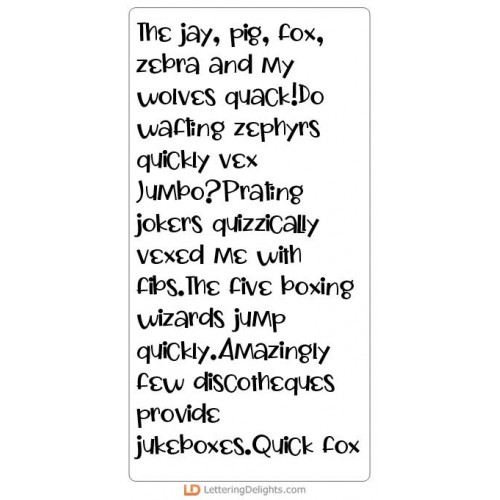 The jay, pig, fox,
zebra and my
wolves quack!Do
wafting zephyrs
quickly vex
Jumbo?Prating
jokers quizzically
vexed me with
fibs.The five boxing
wizards jump
quickly.Amazingly
few discotheques
provide
jukeboxes.Quick fox
LD LetteringDelights.com